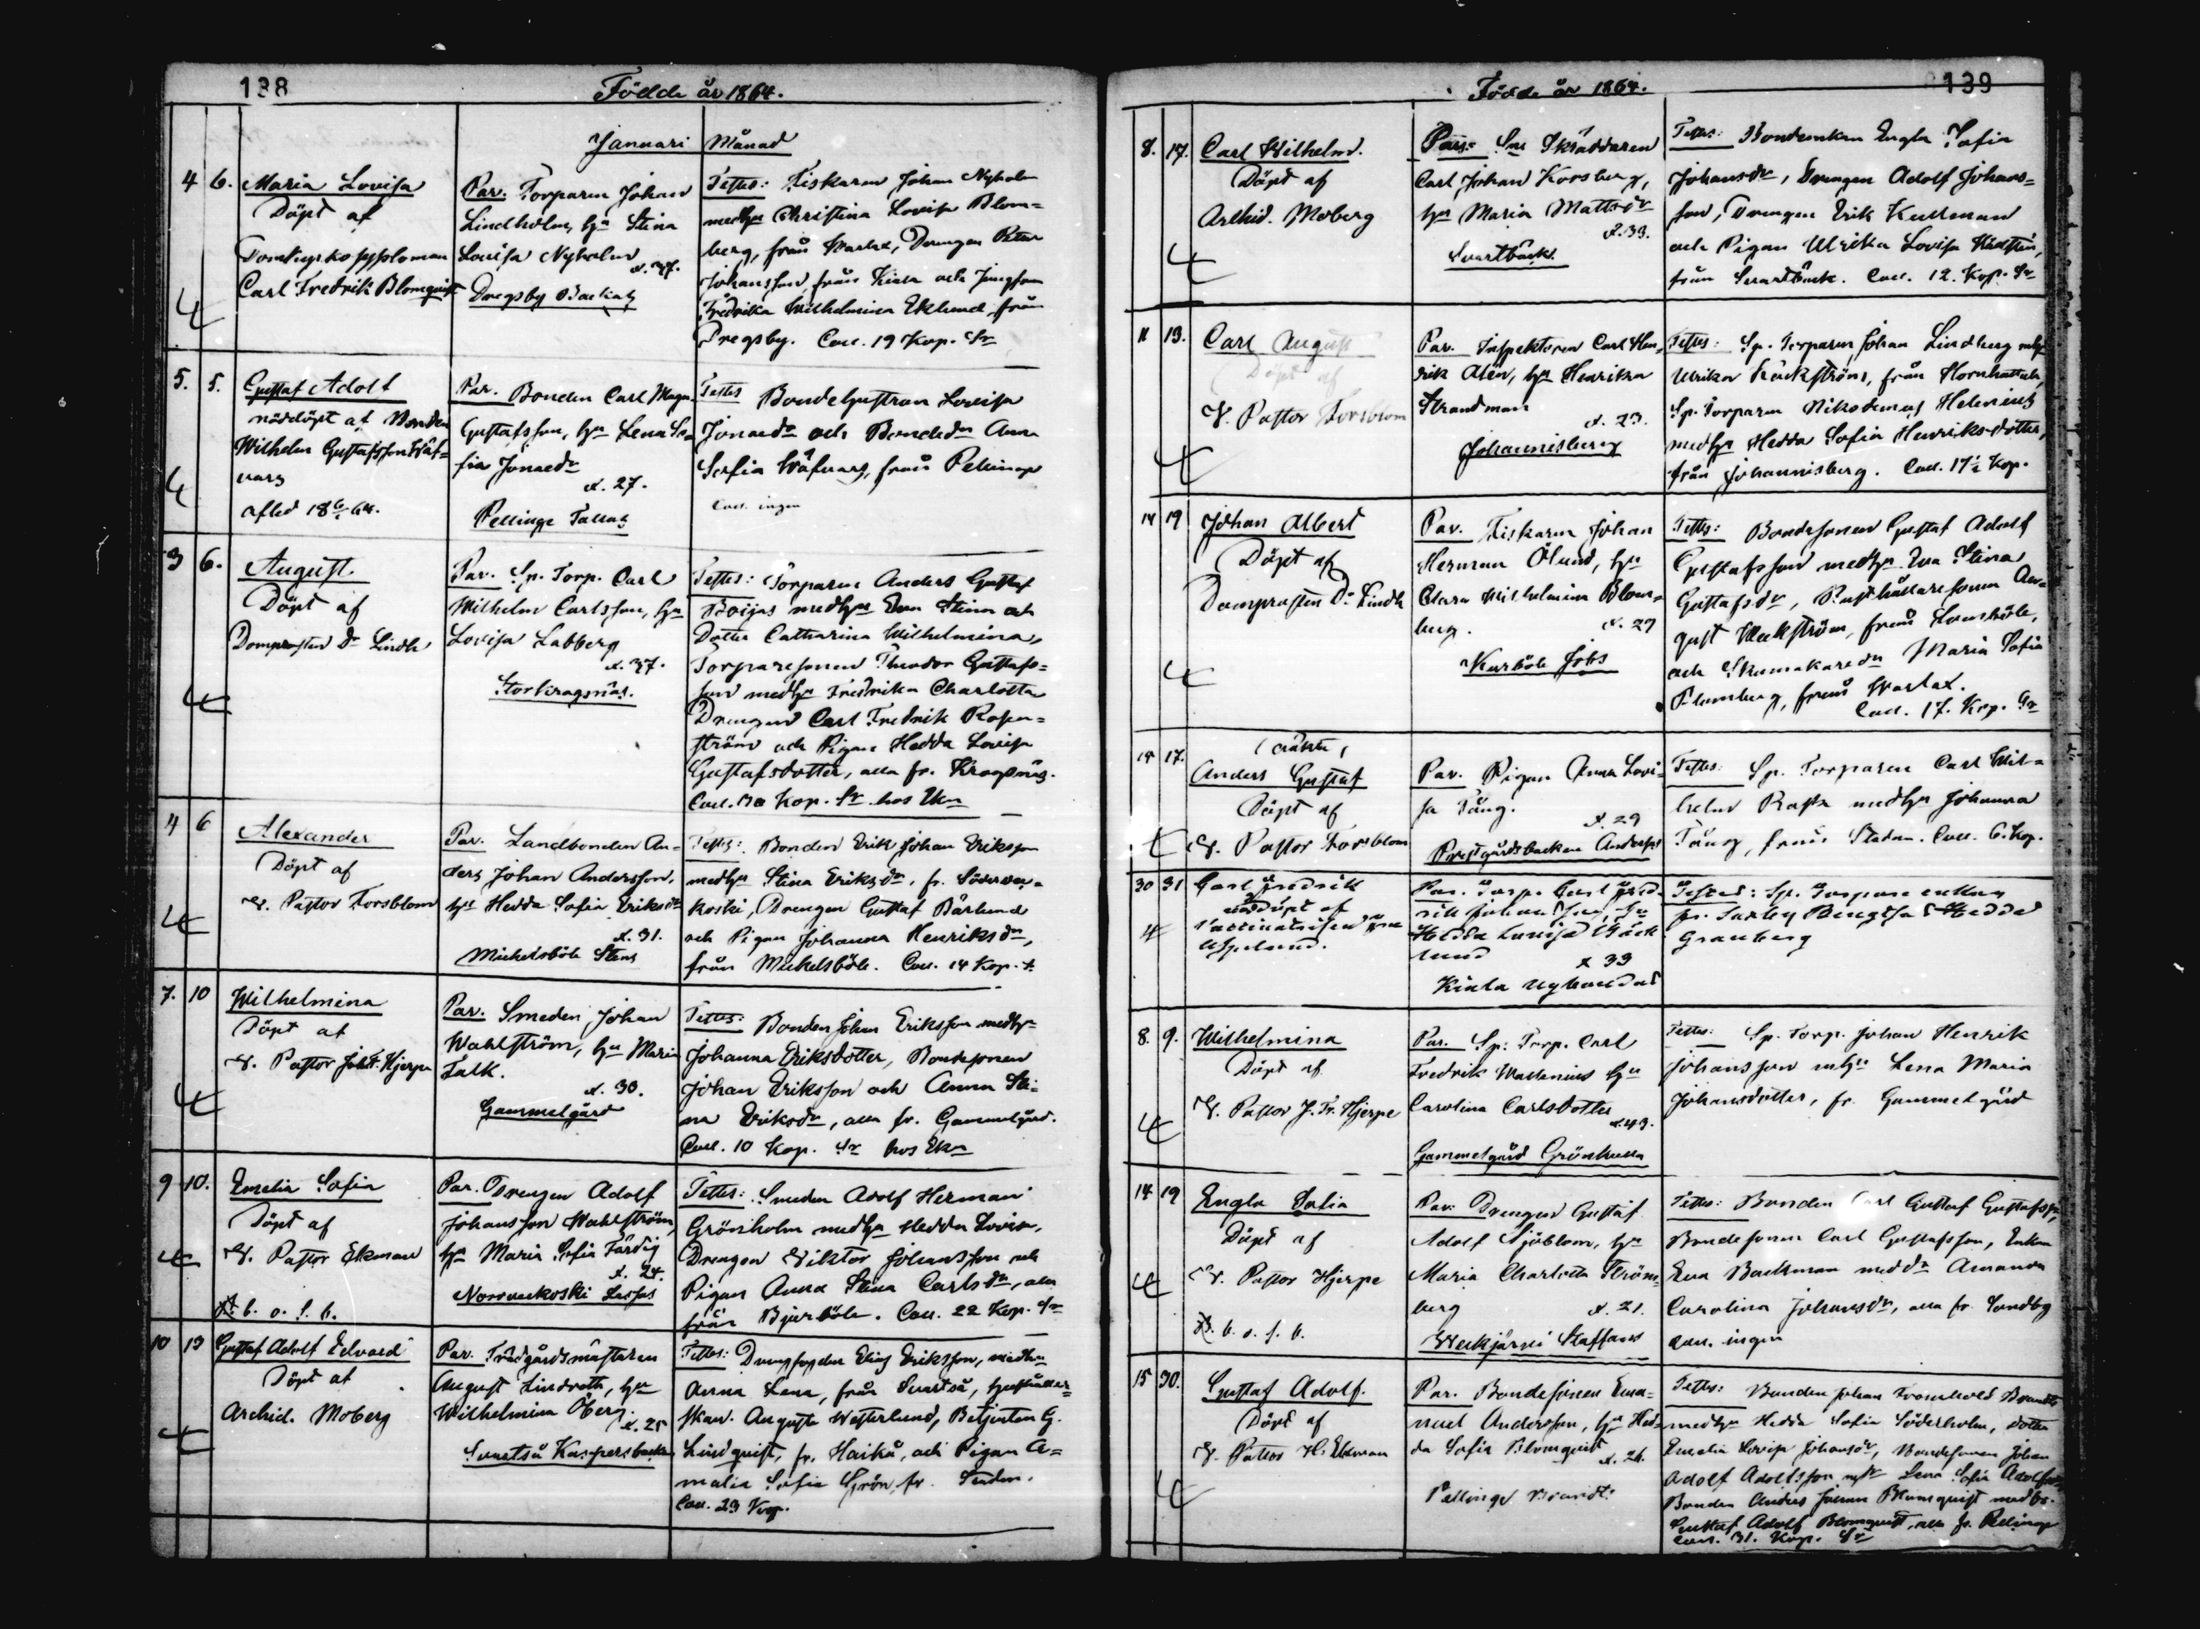 138
Födde år 1864.
Januari Månad
4 6. Maria Lovisa
Döpt af
Carl Fredrik Blomqvist
Par. Torparen Johan
Lindholm, hu Stina
Lovisa Nyholm
x. 37.
Drägsby Backas
Testes: Fiskaren Johan Nyholm
med hu Christina Lovisa Blom=
berg, från Wartax, Drengen Peter
Johansson, från Kiala och Jungfrun
Fredrika Wilhelmina Eklund, från
Dregsby. Coll. 19 Kop. Sr
5. 5. Gustaf Adolf
nöddöpt af Bonden
Wilhelm Gustafsson Wäf=
vars
Par. Bonden Carl Magn.
Gustafsson, hu Lena So=
fia Jonaedr
x. 27.
Pellinge Tallas
Testes Bondegustrun Lovisa
Jonaedr och Bondedr Anna
Sofia Wäfvars, från Pellinge
Coll. ingen
3 6. August
Döpt af
Domprosten Dr Lindh
Par. Sp. Torp. Carl
Wilhelm Carlsson, hu
Lovisa Labberg
x. 37.
Storkragsnäs.
Testes: Torparen Anders Gustaf
Boijas med hu Eva Stina och
Dotter Catharina Wilhelmina,
Torparesonen Theodor Gustafs=
son med hu Fredrika Charlotta
Drengen Carl Fredrik Rosen=
ström och Pigan Hedda Lovisa
Gustafsdotter, alla fr. Kragsnäs.
Kop. Sr hos
4 6 Alexander
Döpt af
V. Pastor Forsblom
Par. Landbonden An=
ders Johan Andersson,
hu Hedda Sofia Eriksdr
x. 31.
Mickelsböle Stens
Testes: Bonden Erik Johan Eriksson
med hu Stina Eriksdr, fr. Söderve=
koski, Drengen Gustaf Bärlund
och Pigan Johanna Henriksdr,
från Mickelsböle. Coll. 14 Kop. S.
7. 10 Wilhelmina
Döpt af
V. Pastor Joh. F. Hjerpe
Par. Smeden Johan
Wahlström, hu Maria
Falk.
x. 30.
Gammelgård
Testes: Bonden Johan Eriksson med hu
Johanna Eriksdotter, Bondesonen
Johan Eriksson och Anna Sti=
na Eriksdr, alla fr. Gammelgård.
Coll. 10 Kop. Sr hos Ekn
9 10. Emelia Sofia
Döpt af
V. Pastor Ekman
b. o. s. b.
Par. Drengen Adolf
Johansson Wahlström,
hu Maria Sofia Färdig
x. 24.
Norrveckoski Lassas
Testes: Smeden Adolf Herman
Grönholm med hu Hedda Lovisa,
Drengen Viktor Johansson och
Pigan Anna Stina Carlsdr, alla
från Bjurböle. Coll. 22 Kop. Sr
10 13 Gustaf Adolf Edvard
Döpt af
Archid. Moberg
Par. Trädgårdsmästaren
August Lindroth, hu
Wilhelmina Öberg.
x. 25
Svartså Kaspersbacka
Testes: Elias Eriksson, med hu
Anna Lena, från Svartså, hushåller=
skan Augusta Westerlund, Betjenten G.
Lindquist, fr. Haikå, och Pigan A=
malia Sofia Grön, fr. Staden.
Coll. 23 Kop.
139
Födde år 1864.
8. 17. Carl Wilhelm.
Döpt af
Archid. Moberg
Par. Sn Skräddaren
Carl Johan Korsberg,
hu Maria Mattsdr
x. 33.
Svartbäck.
Testes: Bondenkan Engla Sofia
Johansdr, Drengen Adolf Johans=
son, Drengen Erik Kullman
och Pigan Ulrika Lovisa
från Svartbäck. Coll. 12. Kop. Sr
11 13. Carl August
Döpt af
V. Pastor Forsblom
Par. Inspektoren Carl Hen=
rik Alén, hu Henrika
Strandman
x. 23.
Johannisberg
Testes: Sp. Torparen Johan Lindberg
Ulrika Käckström, från Hornhattula,
Sp. Torparen Nikodemus Helenius
med hu Hedda Sofia Henriksdotter,
från Johannisberg. Coll. 17½ Kop.
14 19 Johan Albert
Döpt af
Domprosten Dr Lindh
Par. Fiskaren Johan
Herman Ölund, hu
Clara Wilhelmina Blom=
berg.
x. 27
Kurböle Jobs
Testes: Bondesonen Gustaf Adolf
Gustafsson med hu Eva Stina
Gustafsdr, Rusthållaresonen Au=
gust Weckström, från
och Skomakaredr Maria Sofia
Blomberg, från Wartax.
Coll. 17. Kop. Sr
14 17. (oäkta)
Anders Gustaf
Döpt af
V. Pastor Forsblom
Par. Pigan Anna Lovi=
sa Tång.
x. 29
Prestgårdsbacken Anderssas
Testes: Sp. Torparen Carl Wil=
helm Rask med hu Johanna
Tång, från Staden. Coll. 6. Kop.
30 31 Carl Fredrik
nöddöpt af
Par. Torp. Carl Fred=
rik Johansson, hu
Hedda Lovisa Bäck
lund
x 33
Kiala Nybondas
Testes: Sp. Torpare enkan
fr. Saxby Bengtsas Hedda
Granberg
8. 9. Wilhelmina
Döpt af
V. Pastor J. Fr. Hjerpe
Par. Sp. Torp. Carl
Fredrik Wallenius hu
Carolina Carlsdotter
x. 43.
Gammelgård Grönkulla
Testes: Sp. Torp. Johan Henrik
Johansson m hu Lena Maria
Johansdotter, fr. Gammelgård
14 19 Engla Sofia
Döpt af
V. Pastor Hjerpe
b. o. s. b.
Par. Drengen Gustaf
Adolf Sjöblom, hu
Maria Charlotta Ström=
berg
x. 21.
Weckjärvi Staffans
Testes: Bonden Carl Gustaf Gustafsson,
Bondesonen Carl Gustafsson, Enkan
Eva Backman med dr Amanda
Carolina Johansdr, alla fr. Sondby
Coll. ingen
15 30. Gustaf Adolf.
Döpt af
V. Pastor H. Ekman
Par. Bondesonen Ema=
nuel Andersson, hu Hed=
da Sofia Blomquist
x. 26.
Pellinge Brandts
Testes: Bonden Johan Tromhold Brandts
med hu Hedda Sofia Söderholm, dotter
Emelia Lovisa Johansdr, Bondesonen Johan
Adolf Adolfsson m hu Lena Sofia
Bonden Anders Johan Blomquist med
Gustaf Adolf Blomquist, alla fr. Pellinge
Coll. 31. Kop. Sr